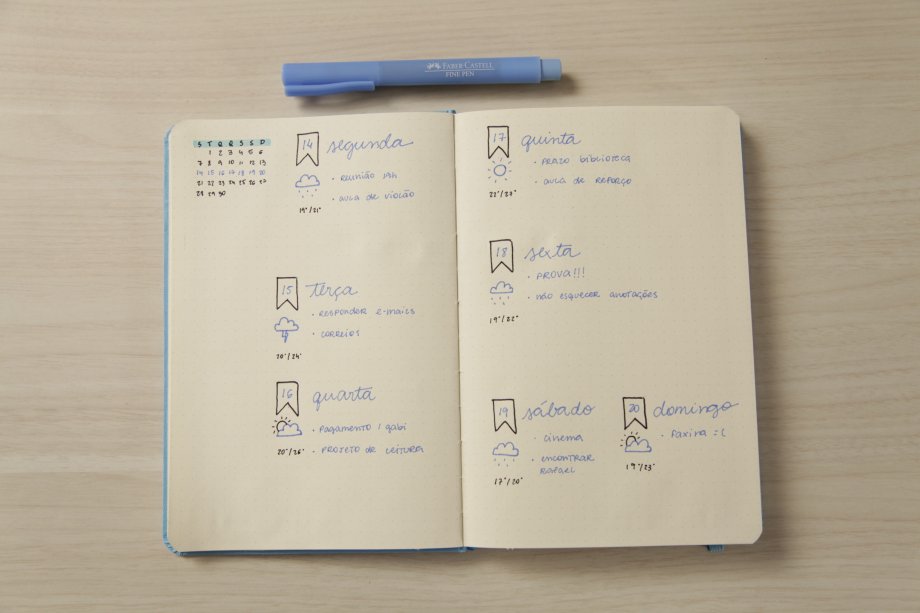 FABER-CASTELL
FINE PEN
S T Q Q S S D
1 2 3 4 5 6
7 8 9 10 11 12 13
14 15 16 17 18 19 20
21 22 23 24 25 26 27
28 29 30
14 segunda
• REUNIÃO 19h
• AULA DE VIOLÃO
19°/21°
15 terça
• RESPONDER E-MAILS
• CORREIOS
20°/24°
16 quarta
• PAGAMENTO / gabi
• PROJETO DE LEITURA
20°/26°
17 quinta
• PRAZO BIBLIOTECA
• AULA DE REFORÇO
22°/27°
18 sexta
• PROVA!!!
• NÃO ESQUECER ANOTAÇÕES
19°/22°
19 sábado
• CINEMA
• ENCONTRAR
RAFAEL
17°/20°
20 domingo
• FAXINA :(
19°/23°